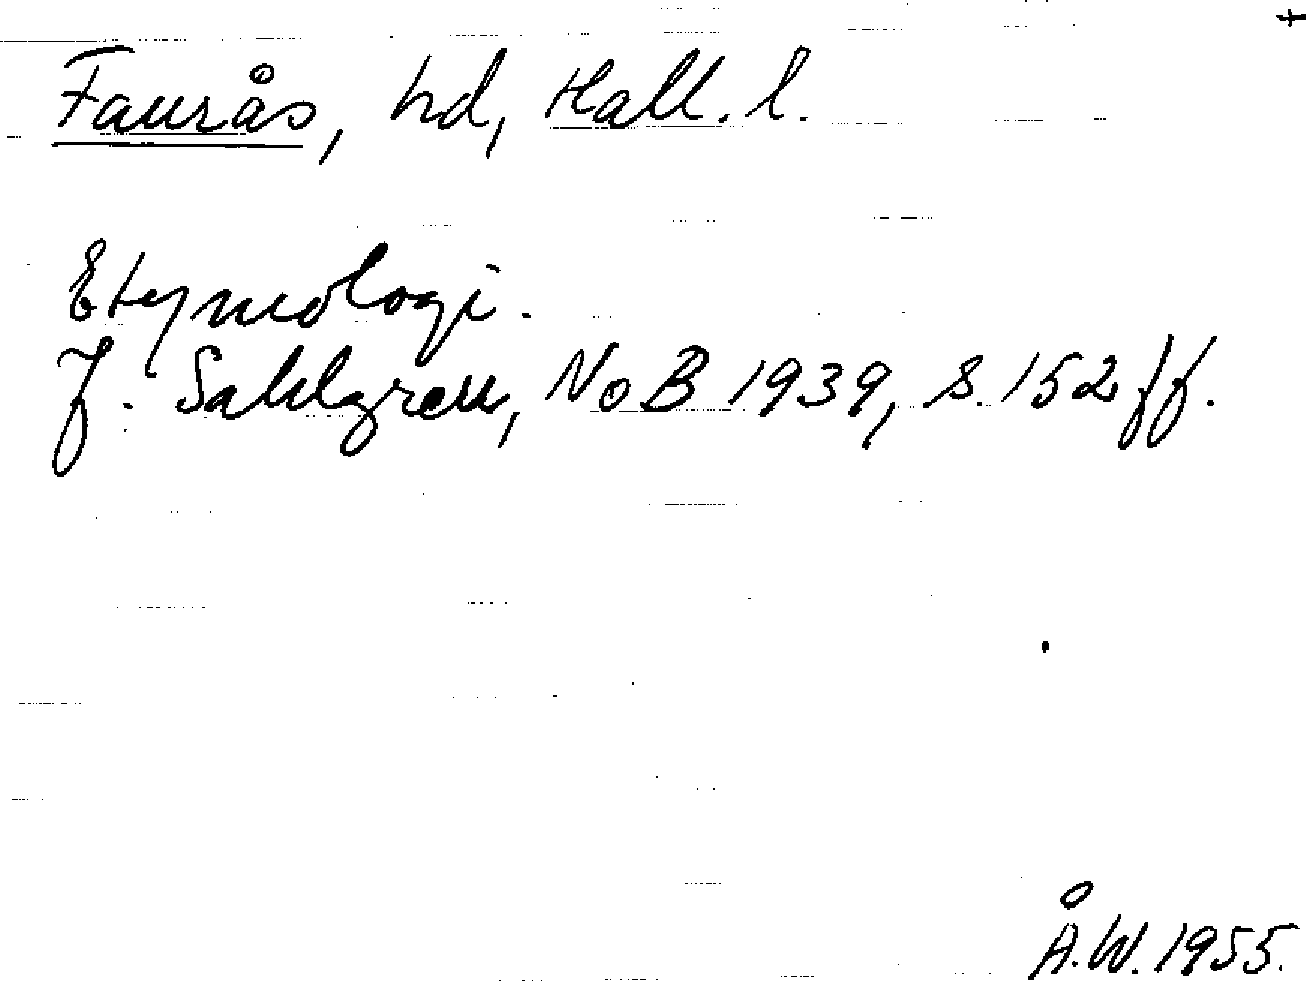 Faurås, hd, Hall. l.
Etymologi.
J. Sahlgren, NoB 1939, s. 152 ff.
Å.W. 1955.